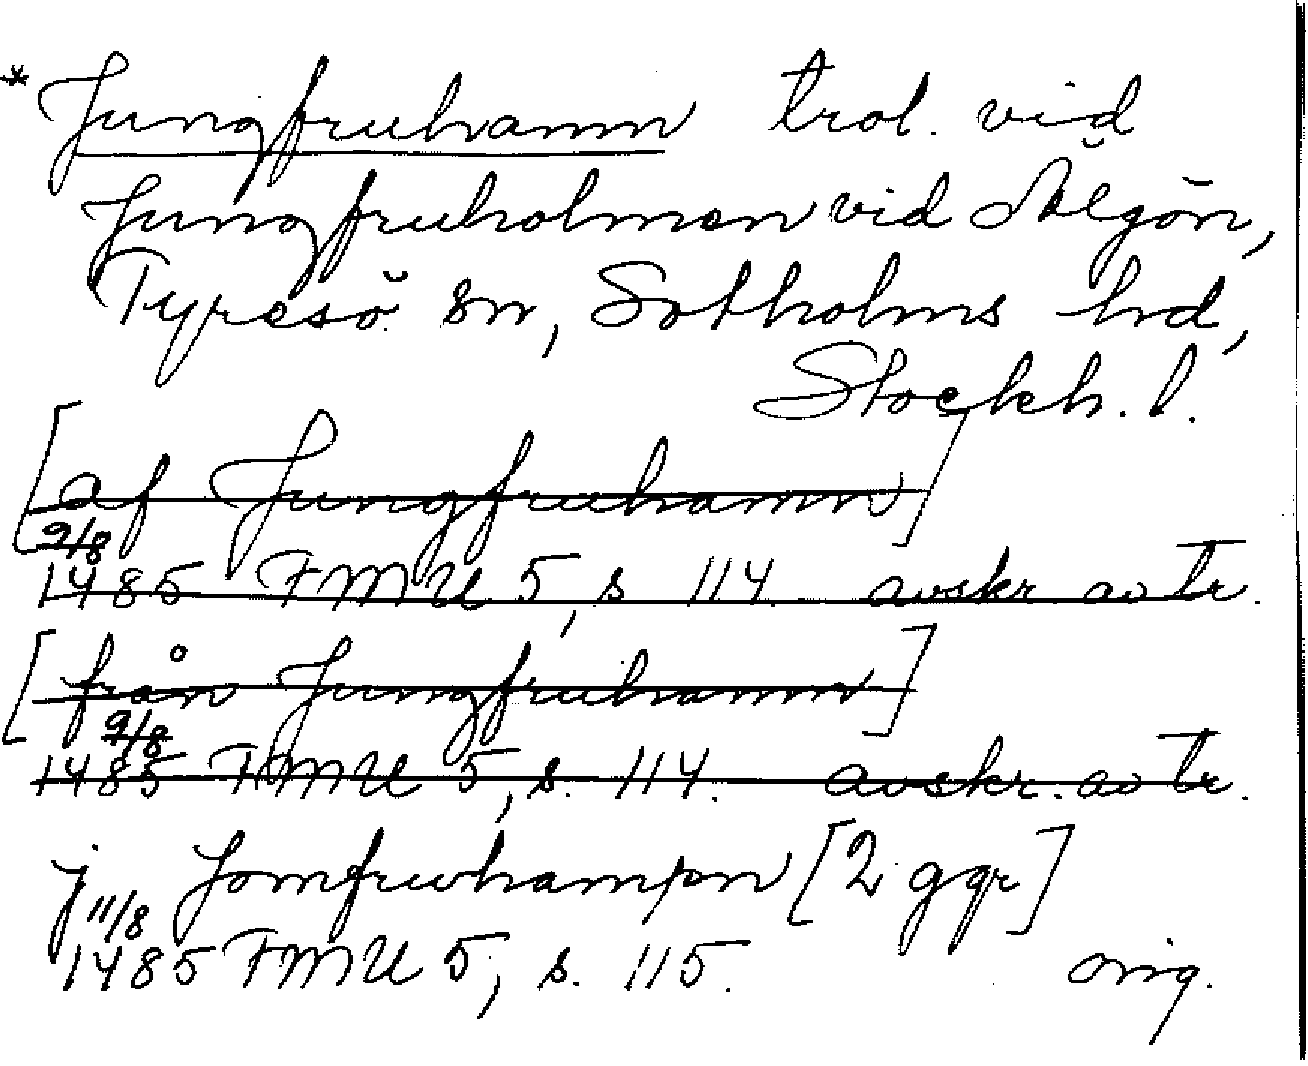 *Jungfruhamn trol. vid
Jungfruholmen vid Älgön,
Tyresö sn, Sotholms hd,
Stockh. l.
[af Jungfruhamn]
9/8
1485 FMU 5, s 114 avskr av tr.
[från Jungfruhamn]
9/8
1485 FMU 5, s. 114. avskr. av tr.
j Jomfrwhampn [2 ggr]
11/8
1485 FMU 5, s. 115. orig.